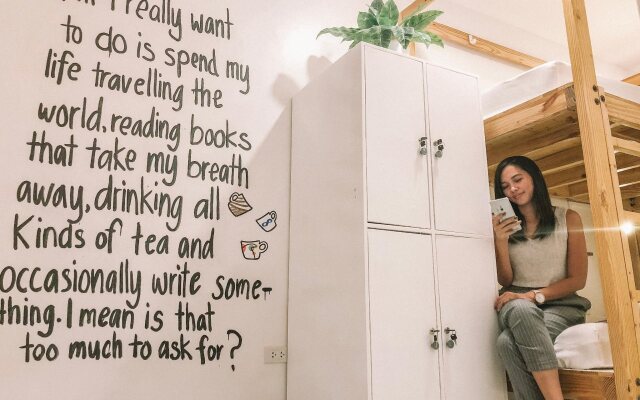 I really want
to do is spend my
life travelling the
world, reading books
that take my breath
away, drinking all
Kinds of tea and
occasionally write some-
thing. I mean is that
too much to ask for?